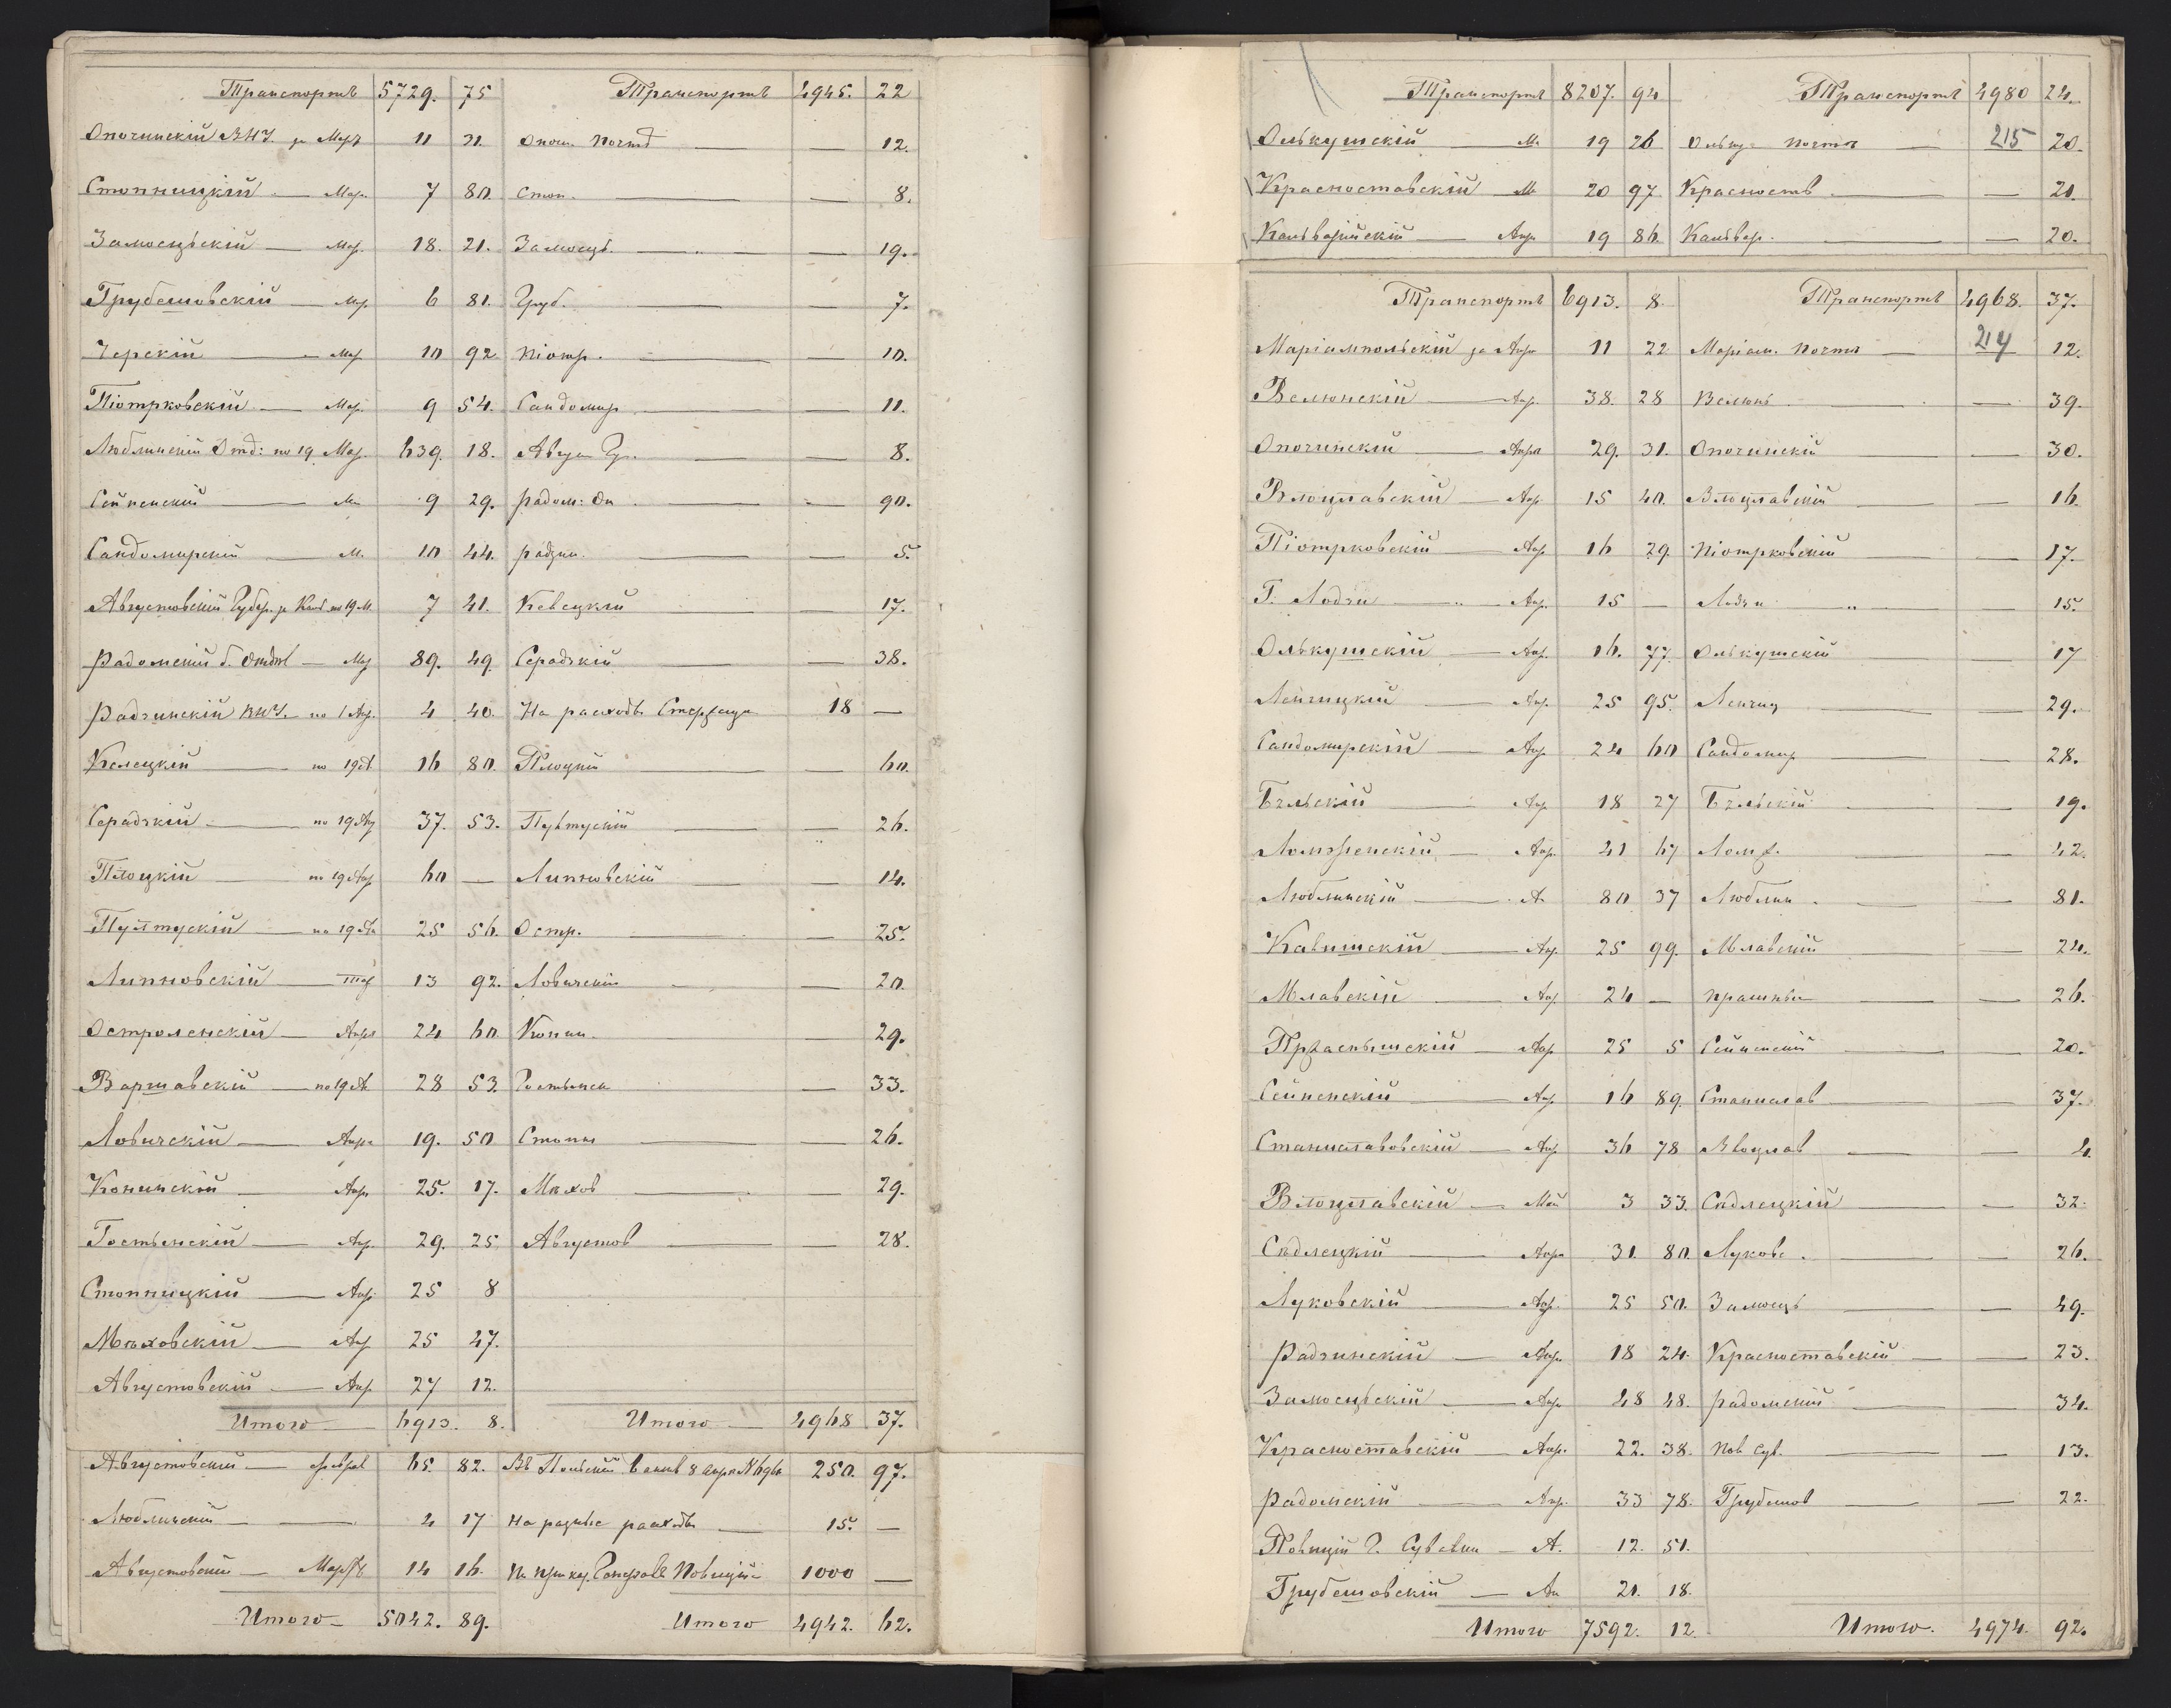 Транспортъ 5729. 75 Транспортъ 4945. 22
Опочинскій В.Н.У. за Мар. 11 31. Опоч. почта — — 12.
Стопницкій — Мар. 7 80. Стоп. — — 8.
Замосцьскій — Мар. 18. 21. Замосць. — — 19.
Грубешовскій — Мар. 6 81. Груб. — — 7.
Черскій — Мар. 10 92 Піотр. — — 10.
Піотрковскій — Мар. 9 54. Сандомир. — — 11.
Люблинскій Отд: по 19 Мар. 639. 18. Август. Гу. — — 8.
Сейненскій — М. 9 29. Радом: От. — — 90.
Сандомирскій — М. 10 44. Радзин. — — 5.
Августовскій Губер. по 19 М. 7 41. Келецкій — — 17.
Радомскій Отдѣл — Мар. 89. 49. Сѣрадзкій — — 38.
Радзинскій В.Н.У. по 1 Апр. 4 40. На расходы 18 —
Келецкій — по 19 А. 16 80. Плоцкій — — 60.
Сѣрадзкій — по 19 Ап. 37. 53. Пултускій — — 26.
Плоцкій — по 19 Апр. 60 — Липновскій — — 14.
Пултускій — по 19 Ап. 25 56. Остр. — — 25.
Липновскій — 13 92. Ловичскій — — 20.
Остроленскій — Апр. 24 60. Конин. — — 29.
Варшавскій — по 19 А. 28 53. Гостынск — — 33.
Ловичскій — Апр. 19. 50. Стопн. — — 26.
Конинскій — Апр. 25. 17. Мѣхов — — 29.
Гостынскій — Апр. 29. 25 Августов — — 28.
Стопницкій — Апр. 25 8
Мѣховскій — Апр. 25 47.
Августовскій — Апр. 27 12.
Итого 6913. 8. Итого 4968 37.
Августовскій — Феврал 65. 82. Въ Польскій банкъ 8 апр. № 250. 97.
Люблинскій — 4 17 На разные расходы — 15. —
Августовскій — Мартъ 14 16. 1000 —
Итого — 5042. 89. Итого 4942. 62.
Транспортъ 8207. 94 Транспортъ 4980 24.
Олькушскій — М. 19 26 Олькуш. почта — 215 20.
Красноставскій — М. 20 97 Красноств. — — 21.
Кальварійскій — Апр. 19 86. Кальвар. — — 20.
Транспортъ 6913. 8. Транспортъ 4968. 37.
Маріампольскій за Апр. 11 22 Маріам. почта — 214 12.
Велюнскій — Апр. 38. 28 Велюнь — — 39.
Опочинскій — Апр. 29. 31. Опочинскій — — 30.
Влоцлавскій — Апр. 15 40. Влоцлавскій — — 16.
Піотрковскій — Апр. 16 29. Піотрковскій — — 17.
Г. Лодзи — Апр. 15 — Лодзи — — 15.
Олькушскій — Апр. 16. 77. Олькушскій — — 17
Ленчицкій — Апр. 25 95. Ленчиц — — 29.
Сандомирскій — Апр. 24 60 Сандомир — — 28.
Бѣльскій — Апр. 18 27 Бѣльскій — — 19.
Ломженскій — Апр. 41 67 Ломж. — — 42.
Люблинскій — А. 80 37 Люблин. — — 81.
Калишскій — Апр. 25 99. Млавскій — — 24.
Млавскій — Апр. 24 — — — 26.
Праснышскій — Апр. 25 5 Сейненскій — — 20.
Сейненскій — Апр. 16 89. Станислав — — 37.
Станиславовскій — Апр. 36 78 Влоцлав — — 4.
Влоцлавскій — Май 3 33. Сѣдлецкій — — 32.
Сѣдлецкій — Апр. 31. 80. Луковс. — — 26.
Луковскій — Апр. 25 50. Замосць — — 49.
Радзинскій — Апр. 18 24. Красноставскій — — 23.
Замосцьскій — Апр. 48 48. Радомскій — — 34.
Красноставскій — Апр. 22. 38. Пов. Сув. — — 13.
Радомскій — Апр. 33 78. Грубешов — — 22.
Полиціи Г. Сувалки — А. 12. 51.
Грубешовскій — Ап. 21. 18.
Итого 7592. 12. Итого. 4974. 92.